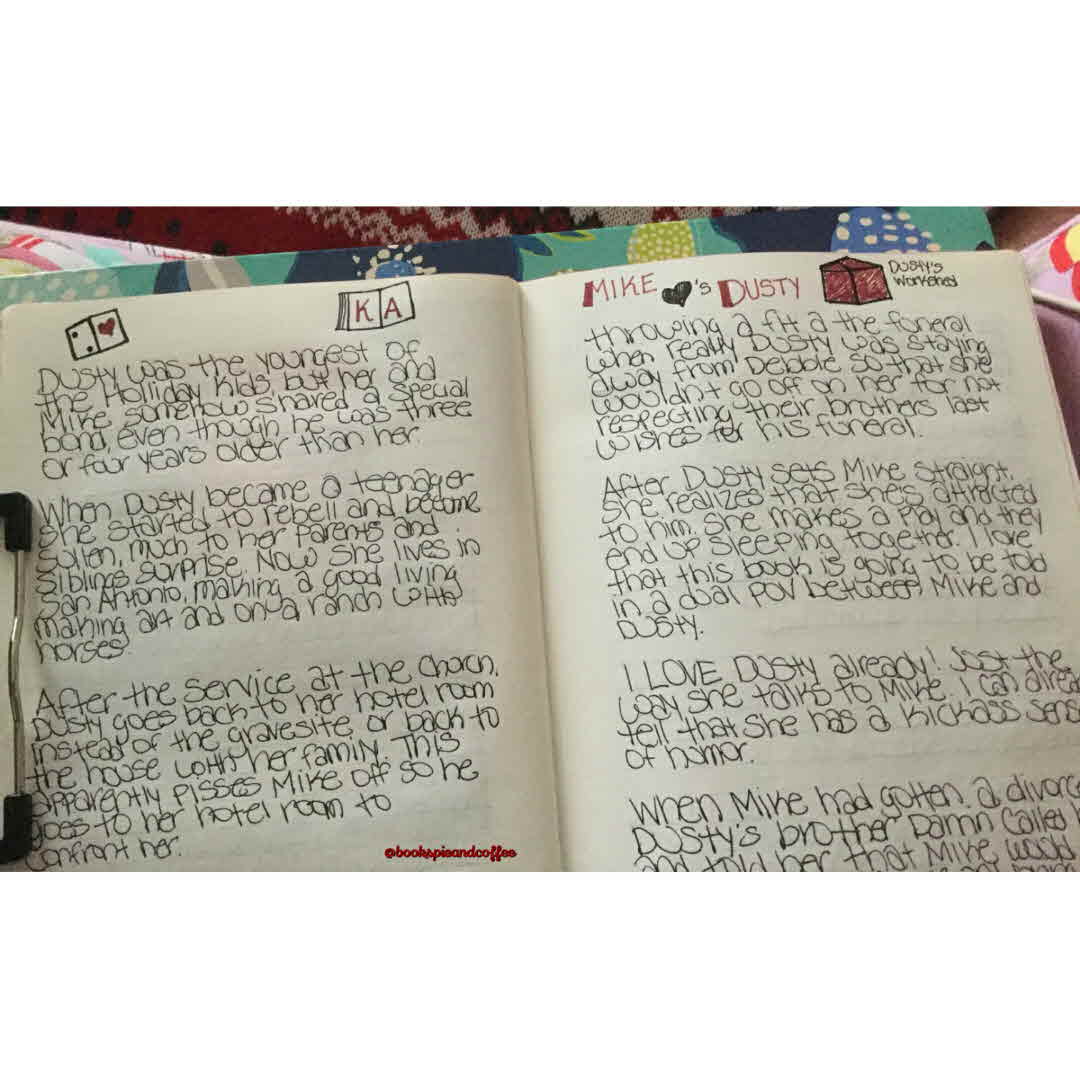 KA
Dusty was the youngest of
the Holiday kids, but her and
Mike somehow shared a special
bond, even though he was three
or four years older than her.
When Dusty became a teenager
she started to rebell and become
sullen, much to her parents and
siblings surprise. Now she lives in
San Antonio, making a good living
making art and on a ranch with
horses.
After the service at the church,
Dusty goes back to her hotel room
instead of the gravesite or back to
the house with her family. This
apparently pisses Mike off so he
goes to her hotel room to
confront her.
@bookspieandcoffee
MIKE 's DUSTY
Dusty's
Workshed
throwing a fit a the foneral
when really Dusty was staying
away from Debbie so that she
wouldn't go off on her for not
respecting their brothers last
wishes for his funeral.
After Dusty sets Mike straight,
she realizes that she's attracted
to him. She makes a play and they
end up sleeping together. I love
that this book is going to be told
in a dual POV between Mike and
Dusty.
I LOVE Dusty already! Just the
way she talks to Mike. I can
tell that she has a kickass
of humor.
When Mike had gotten a
Dusty's brother Damn called
and told her that Mike would